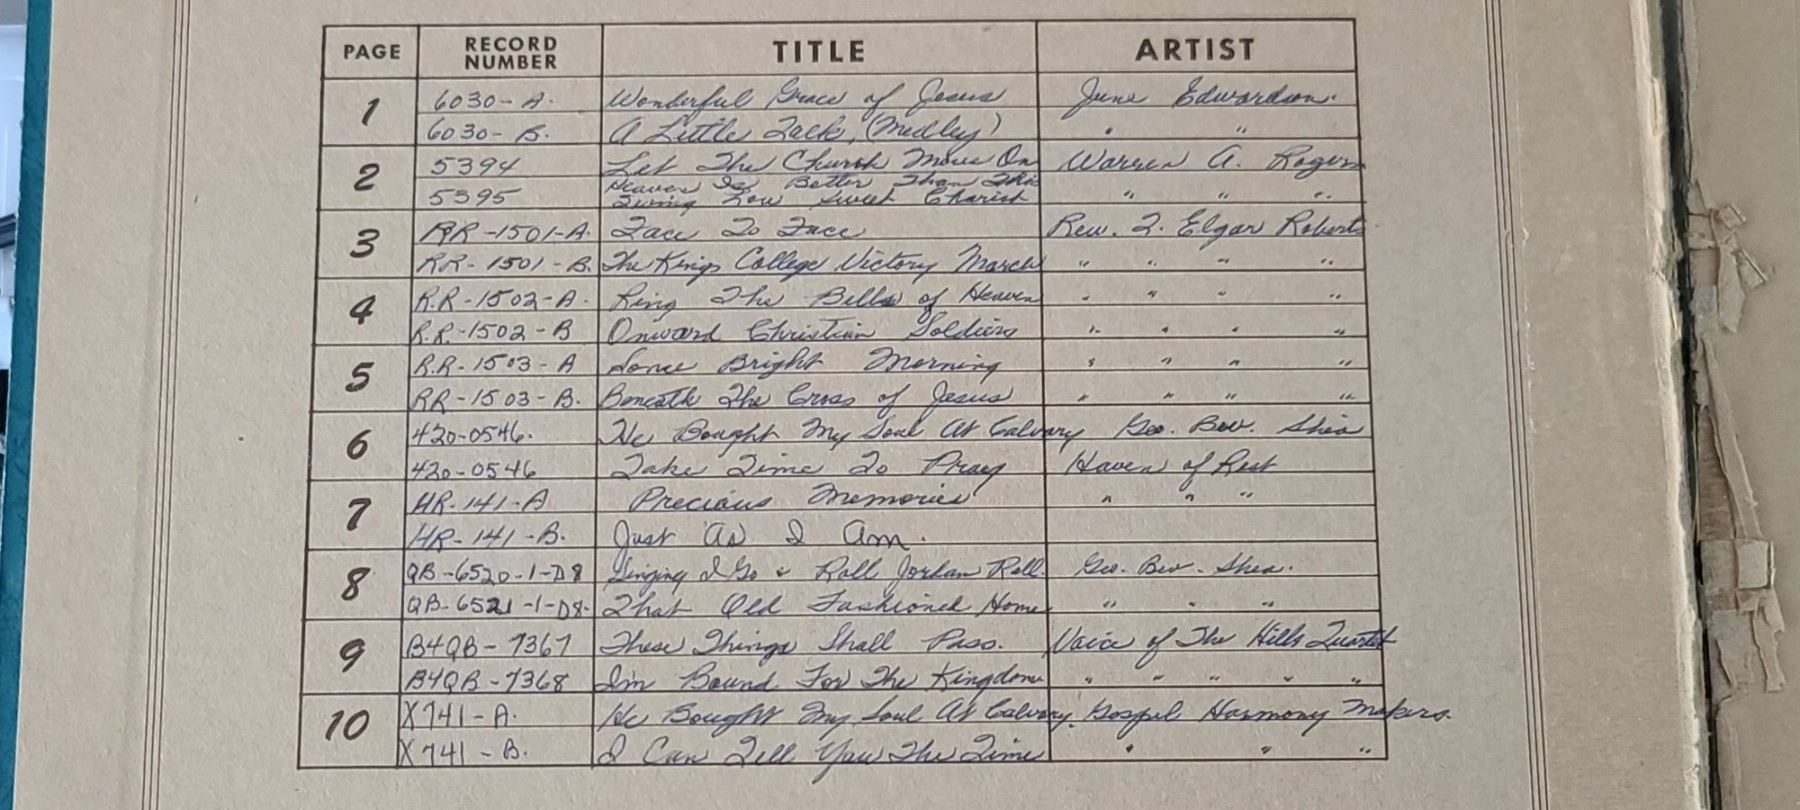 PAGE RECORD NUMBER TITLE ARTIST
1 6030-A. Wonderful Grace of Jesus June Edwardson.
6030-B. A Little Talk, (Medley) " "
2 5394 Let The Church Move On Warren A. Rogers
Heaven Is Better Than This
5395 Swing Low Sweet Chariot " " "
3 RR-1501-A. Face To Face Rev. F. Elgar Roberts
RR-1501-B. The Kings College Victory March " " " "
4 R.R-1502-A. Ring The Bells of Heaven " " " "
R.R.-1502-B Onward Christian Soldiers " " " "
5 R.R-1503-A Some Bright Morning " " " "
RR-1503-B. Beneath The Cross of Jesus " " " "
6 420-0546. He Bought My Soul At Calvary Geo. Bev. Shea
420-0546 Take Time To Pray Haven of Rest
7 HR-141-A Precious Memories " " "
HR-141-B. Just As I Am.
8 QB-6520-1-D8 Singing I Go & Roll Jordan Roll. Geo. Bev. Shea.
QB-6521-1-D8. That Old Fashioned Home " " "
9 B4QB-7367 These Things Shall Pass. Voice of The Hills Quartet
B4QB-7368 Im Bound For The Kingdom " " " " "
10 X741-A. He Bought My Soul At Calvary. Gospel Harmony Makers.
X741-B. I Can Tell You The Time " " "